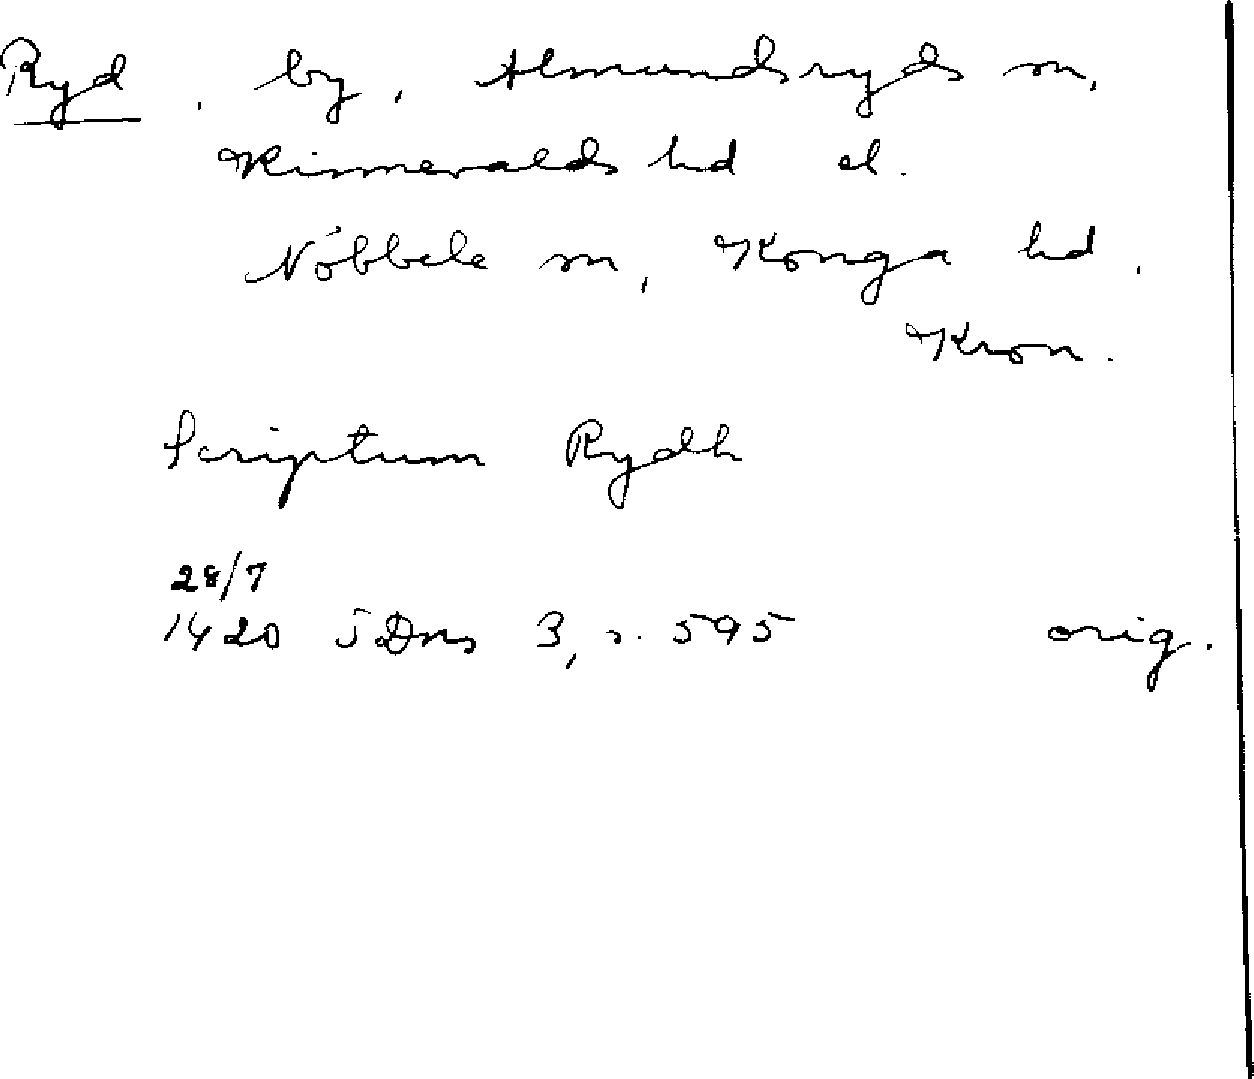 Ryd, by, Almundsryds sn,
Kinnevalds hd el.
Nöbbele sn, Konga hd,
Kron.
Scriptum Rydh
28/7
1420 SDns 3, s. 595 orig.